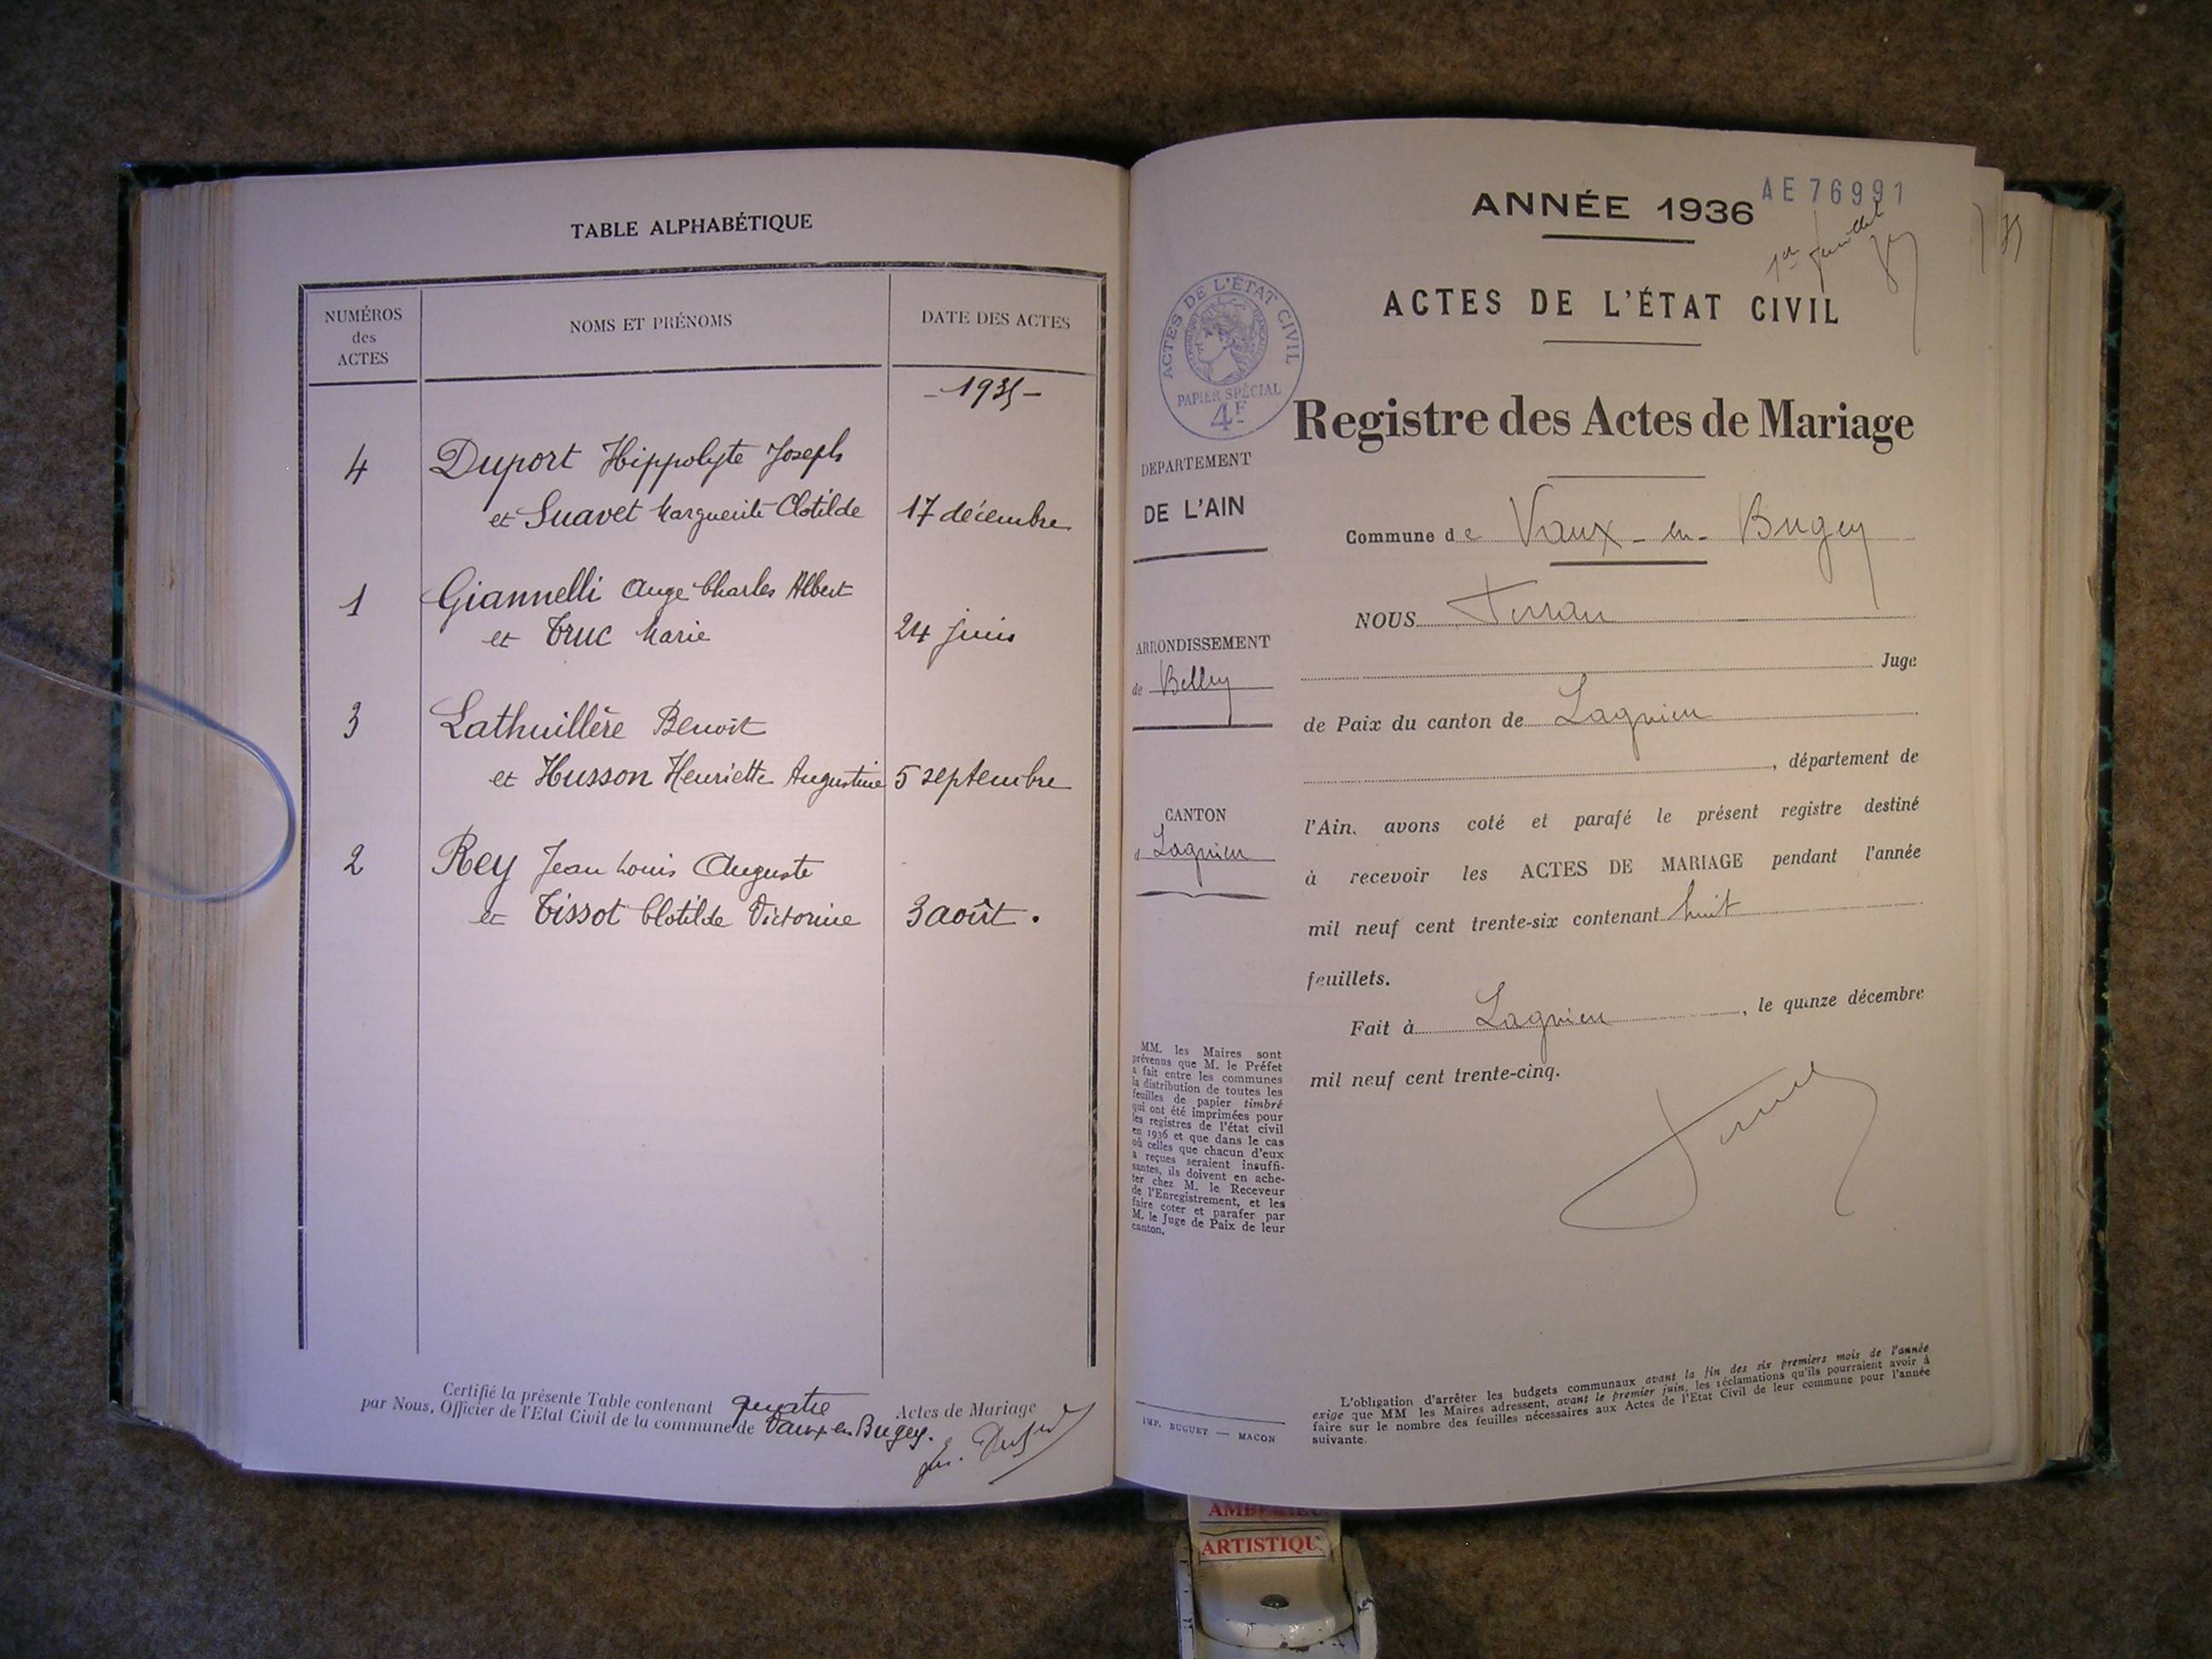 TABLE ALPHABÉTIQUE
NUMÉROS
des
ACTES
NOMS ET PRÉNOMS
DATE DES ACTES
- 1935 -
4 Duport Hippolyte Joseph
et Suavet Marguerite Clotilde 17 décembre
1 Giannelli Ange Charles Albert
et Truc Marie 24 juin
3 Lathuillère Benoit
et Husson Henriette Augustine 5 septembre
2 Rey Jean Louis Auguste
et Tissot Clotilde Victorine 3 août.
Certifié la présente Table contenant quatre Actes de Mariage
par Nous, Officier de l'Etat Civil de la commune de Vaux en Bugey.
ANNÉE 1936
AE 76991
1er feuillet
ACTES DE L'ÉTAT CIVIL
ACTES DE L'ÉTAT CIVIL
PAPIER SPÉCIAL
4F
Registre des Actes de Mariage
DEPARTEMENT
DE L'AIN
ARRONDISSEMENT
de Belley
CANTON
d Lagnieu
Commune de Vaux-en-Bugey
NOUS
Juge
de Paix du canton de Lagnieu
, département de
l'Ain, avons coté et parafé le présent registre destiné
à recevoir les ACTES DE MARIAGE pendant l'année
mil neuf cent trente-six contenant huit
feuillets.
Fait à Lagnieu, le quinze décembre
mil neuf cent trente-cinq.
MM. les Maires sont
prévenus que M. le Préfet
a fait entre les communes
la distribution de toutes les
feuilles de papier timbré
qui ont été imprimées pour
les registres de l'état civil
en 1936 et que dans le cas
où celles que chacun d'eux
a reçues seraient insuffi-
santes, ils doivent en ache-
ter chez M. le Receveur
de l'Enregistrement, et les
faire coter et parafer par
M. le Juge de Paix de leur
canton.
IMP. BUGUET — MACON
L'obligation d'arrêter les budgets communaux avant la fin des six premiers mois de l'année
exige que MM les Maires adressent, avant le premier juin, les réclamations qu'ils pourraient avoir à
faire sur le nombre des feuilles nécessaires aux Actes de l'Etat Civil de leur commune pour l'année
suivante.
ARTISTIQU